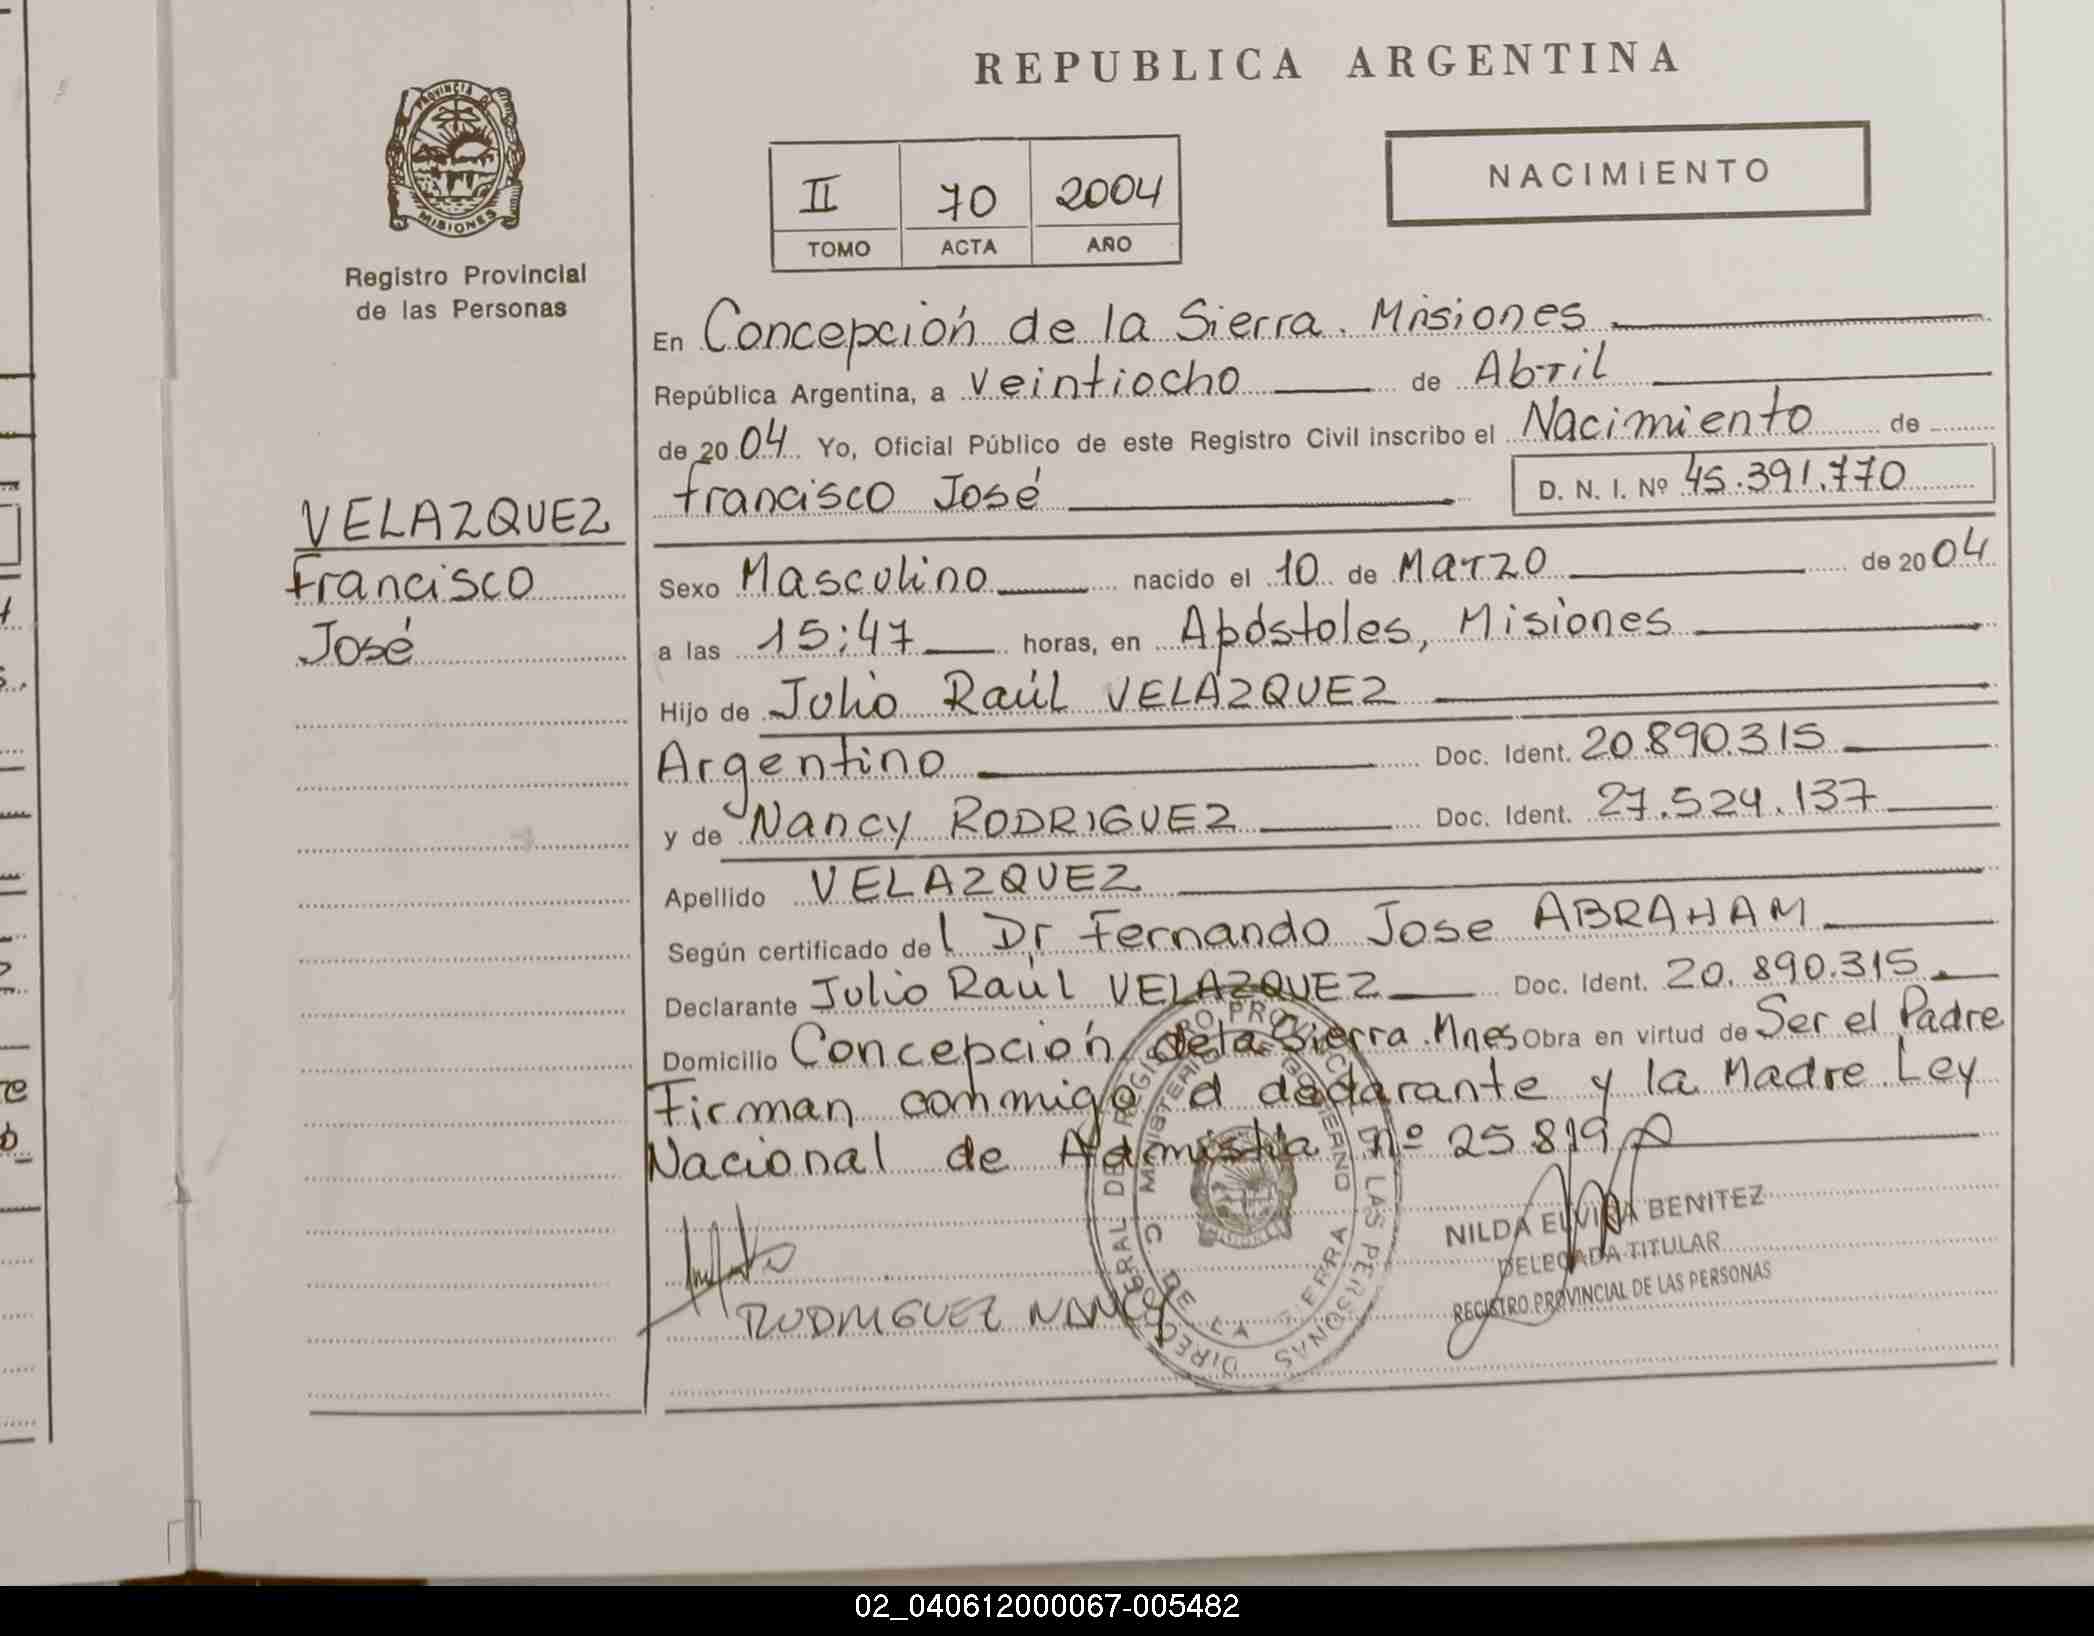 REPUBLICA ARGENTINA
PROVINCIA DE
MISIONES
Registro Provincial
de las Personas
II 70 2004
TOMO ACTA AÑO
NACIMIENTO
En Concepción de la Sierra. Misiones
República Argentina, a Veintiocho de Abril
de 2004 Yo, Oficial Público de este Registro Civil inscribo el Nacimiento de
Francisco José D. N. I. Nº 45.391.770
VELAZQUEZ
Francisco
José
Sexo Masculino nacido el 10 de Marzo de 2004
a las 15:47 horas, en Apóstoles, Misiones
Hijo de Julio Raúl VELAZQUEZ
Argentino Doc. Ident. 20.890.315
y de Nancy RODRIGUEZ Doc. Ident. 27.524.137
Apellido VELAZQUEZ
Según certificado del Dr Fernando Jose ABRAHAM
Declarante Julio Raúl VELAZQUEZ Doc. Ident. 20.890.315
Domicilio Concepción de la Sierra. Mnes Obra en virtud de Ser el Padre
Firman conmigo el declarante y la Madre Ley
Nacional de Admistia nº 25.819
RODRIGUEZ NANCY
NILDA ELVIRA BENITEZ
DELEGADA TITULAR
REGISTRO PROVINCIAL DE LAS PERSONAS
02_040612000067-005482